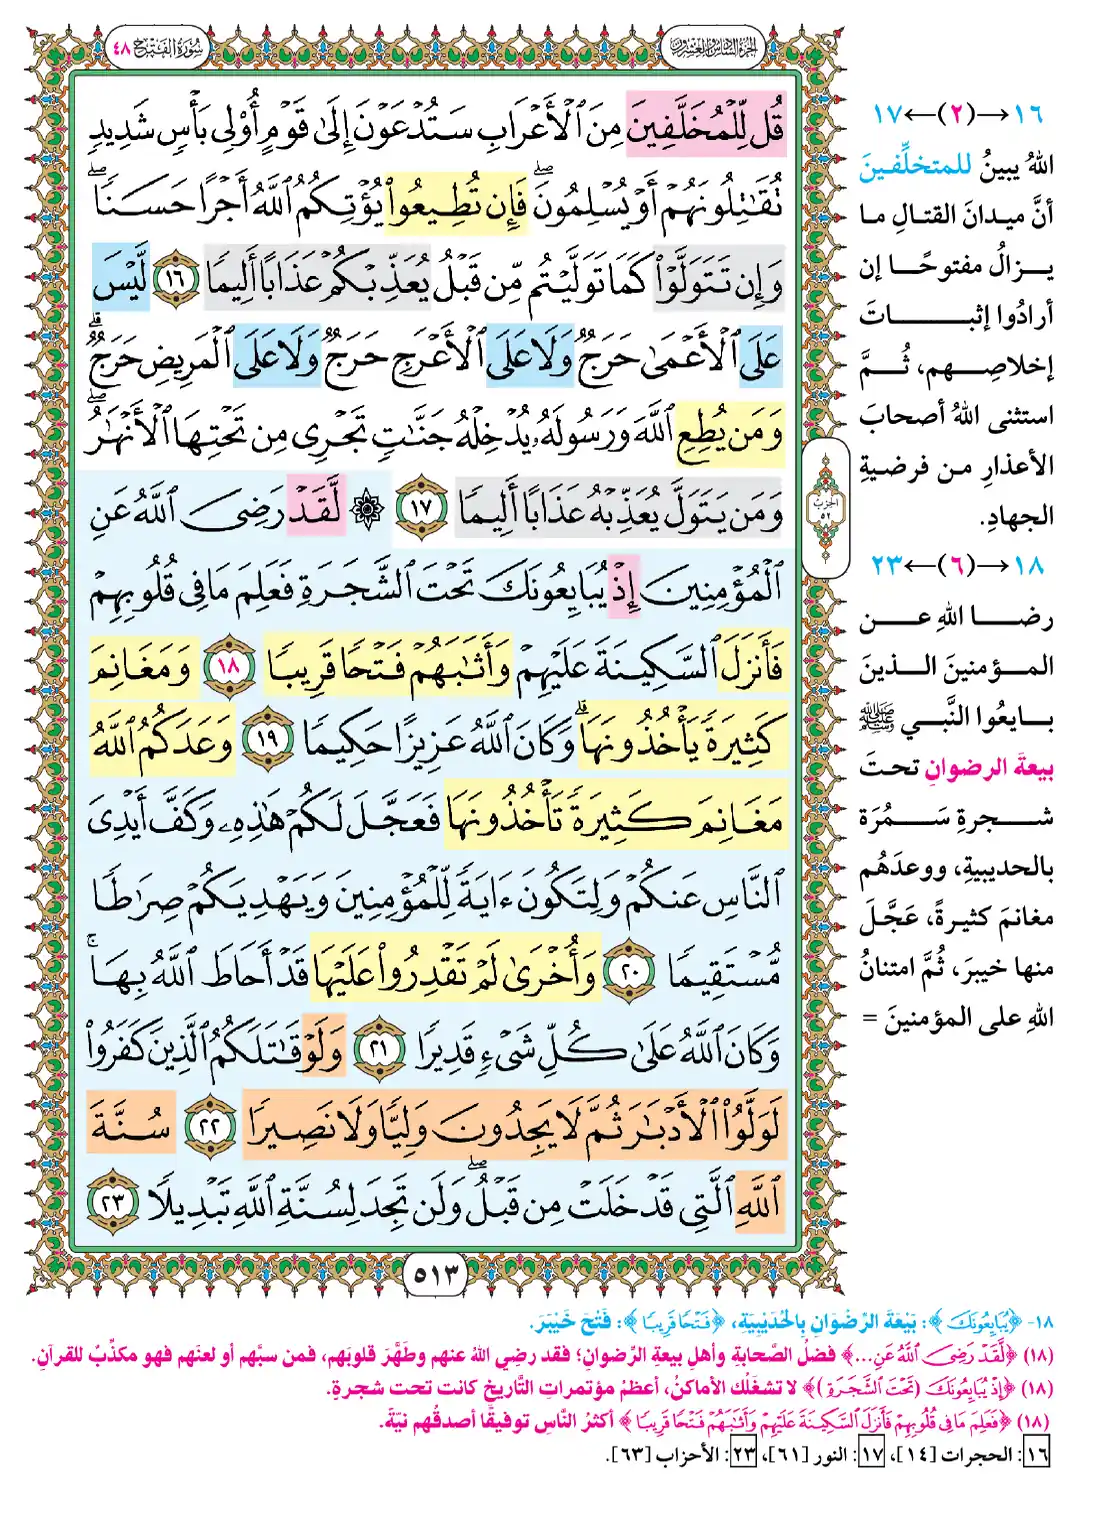 الجزء السادس والعشرون
سورة الفتح ٤٨
قُل لِّلْمُخَلَّفِينَ مِنَ ٱلْأَعْرَابِ سَتُدْعَوْنَ إِلَىٰ قَوْمٍ أُو۟لِى بَأْسٍ شَدِيدٍ
تُقَـٰتِلُونَهُمْ أَوْ يُسْلِمُونَ ۖ فَإِن تُطِيعُوا۟ يُؤْتِكُمُ ٱللَّهُ أَجْرًا حَسَنًا ۖ
وَإِن تَتَوَلَّوْا۟ كَمَا تَوَلَّيْتُم مِّن قَبْلُ يُعَذِّبْكُمْ عَذَابًا أَلِيمًا ١٦ لَّيْسَ
عَلَى ٱلْأَعْمَىٰ حَرَجٌ وَلَا عَلَى ٱلْأَعْرَجِ حَرَجٌ وَلَا عَلَى ٱلْمَرِيضِ حَرَجٌ ۗ
وَمَن يُطِعِ ٱللَّهَ وَرَسُولَهُۥ يُدْخِلْهُ جَنَّـٰتٍ تَجْرِى مِن تَحْتِهَا ٱلْأَنْهَـٰرُ ۖ
وَمَن يَتَوَلَّ يُعَذِّبْهُ عَذَابًا أَلِيمًا ١٧ ۞ لَّقَدْ رَضِىَ ٱللَّهُ عَنِ
ٱلْمُؤْمِنِينَ إِذْ يُبَايِعُونَكَ تَحْتَ ٱلشَّجَرَةِ فَعَلِمَ مَا فِى قُلُوبِهِمْ
فَأَنزَلَ ٱلسَّكِينَةَ عَلَيْهِمْ وَأَثَـٰبَهُمْ فَتْحًا قَرِيبًا ١٨ وَمَغَانِمَ
كَثِيرَةً يَأْخُذُونَهَا ۗ وَكَانَ ٱللَّهُ عَزِيزًا حَكِيمًا ١٩ وَعَدَكُمُ ٱللَّهُ
مَغَانِمَ كَثِيرَةً تَأْخُذُونَهَا فَعَجَّلَ لَكُمْ هَـٰذِهِۦ وَكَفَّ أَيْدِىَ
ٱلنَّاسِ عَنكُمْ وَلِتَكُونَ ءَايَةً لِّلْمُؤْمِنِينَ وَيَهْدِيَكُمْ صِرَٰطًا
مُّسْتَقِيمًا ٢٠ وَأُخْرَىٰ لَمْ تَقْدِرُوا۟ عَلَيْهَا قَدْ أَحَاطَ ٱللَّهُ بِهَا ۚ
وَكَانَ ٱللَّهُ عَلَىٰ كُلِّ شَىْءٍ قَدِيرًا ٢١ وَلَوْ قَـٰتَلَكُمُ ٱلَّذِينَ كَفَرُوا۟
لَوَلَّوُا۟ ٱلْأَدْبَـٰرَ ثُمَّ لَا يَجِدُونَ وَلِيًّا وَلَا نَصِيرًا ٢٢ سُنَّةَ
ٱللَّهِ ٱلَّتِى قَدْ خَلَتْ مِن قَبْلُ ۖ وَلَن تَجِدَ لِسُنَّةِ ٱللَّهِ تَبْدِيلًا ٢٣
٥١٣
الحزب
٥٢
١٦→(٢)←١٧
اللهُ يبينُ للمتخلِّفينَ
أنَّ ميدانَ القتالِ ما
يزالُ مفتوحًا إن
أرادُوا إثباتَ
إخلاصِهم، ثُمَّ
استثنى اللهُ أصحابَ
الأعذارِ من فرضيةِ
الجهادِ.
١٨→(٦)←٢٣
رضا اللهِ عن
المؤمنينَ الذينَ
بايعُوا النَّبي ﷺ
بيعةَ الرضوانِ تحتَ
شجرةِ سَمُرَة
بالحديبيةِ، ووعدَهُم
مغانمَ كثيرةً، عَجَّلَ
منها خيبرَ، ثُمَّ امتنانُ
اللهِ على المؤمنينَ =
١٨- ﴿يُبَايِعُونَكَ﴾: بَيْعَةَ الرِّضْوَانِ بِالْحُدَيْبِيَةِ، ﴿فَتْحًا قَرِيبًا﴾: فَتْحَ خَيْبَرَ.
(١٨) ﴿لَّقَدْ رَضِىَ ٱللَّهُ عَنِ...﴾ فضلُ الصَّحابةِ وأهلِ بيعةِ الرِّضوانِ؛ فقد رضِي اللهُ عنهم وطهَّر قلوبَهم، فمن سبَّهم أو لعنَهم فهو مكذِّبٌ للقرآنِ.
(١٨) ﴿إِذْ يُبَايِعُونَكَ (تَحْتَ ٱلشَّجَرَةِ)﴾ لا تشغلْك الأماكنُ، أعظمُ مؤتمراتِ التَّاريخِ كانت تحت شجرةٍ.
(١٨) ﴿فَعَلِمَ مَا فِى قُلُوبِهِمْ فَأَنزَلَ ٱلسَّكِينَةَ عَلَيْهِمْ وَأَثَـٰبَهُمْ فَتْحًا قَرِيبًا﴾ أكثرُ النَّاسِ توفيقًا أصدقُهم نيّةً.
١٦: الحجرات [١٤]، ١٧: النور [٦١]، ٢٣: الأحزاب [٦٣].